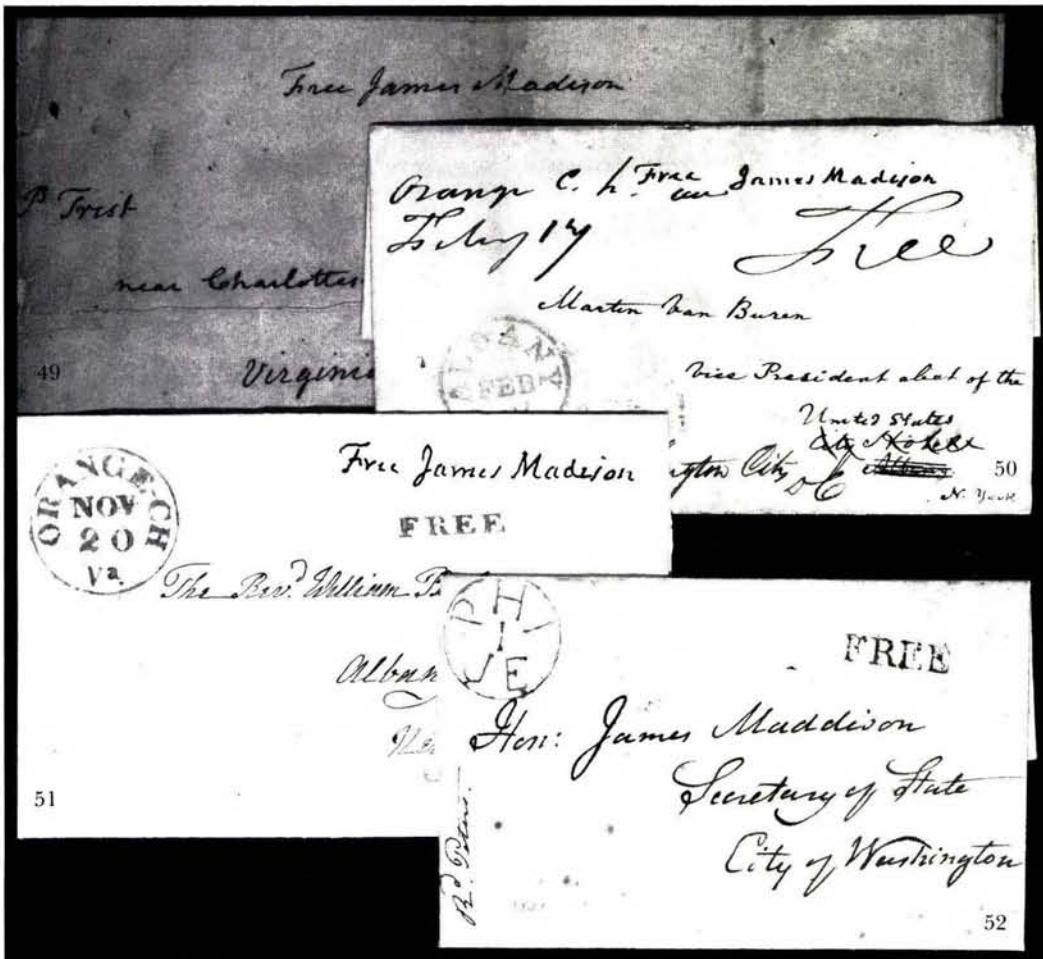 Free James Madison
P. Trist
near Charlottes
Virginia
49
Orange C. h. Free James Madison
Feby 17 Free
Martin Van Buren
ALBANY
FEB
Vice President elect of the
United States
City Hotel
gton City D C Albany
N. York
50
ORANGE CH
NOV
20
Va.
Free James Madison
FREE
The Revd. William
Alban
51
PH
1
JE
FREE
Hon: James Maddison
Secretary of State
City of Washington
Rd. Peters.
52